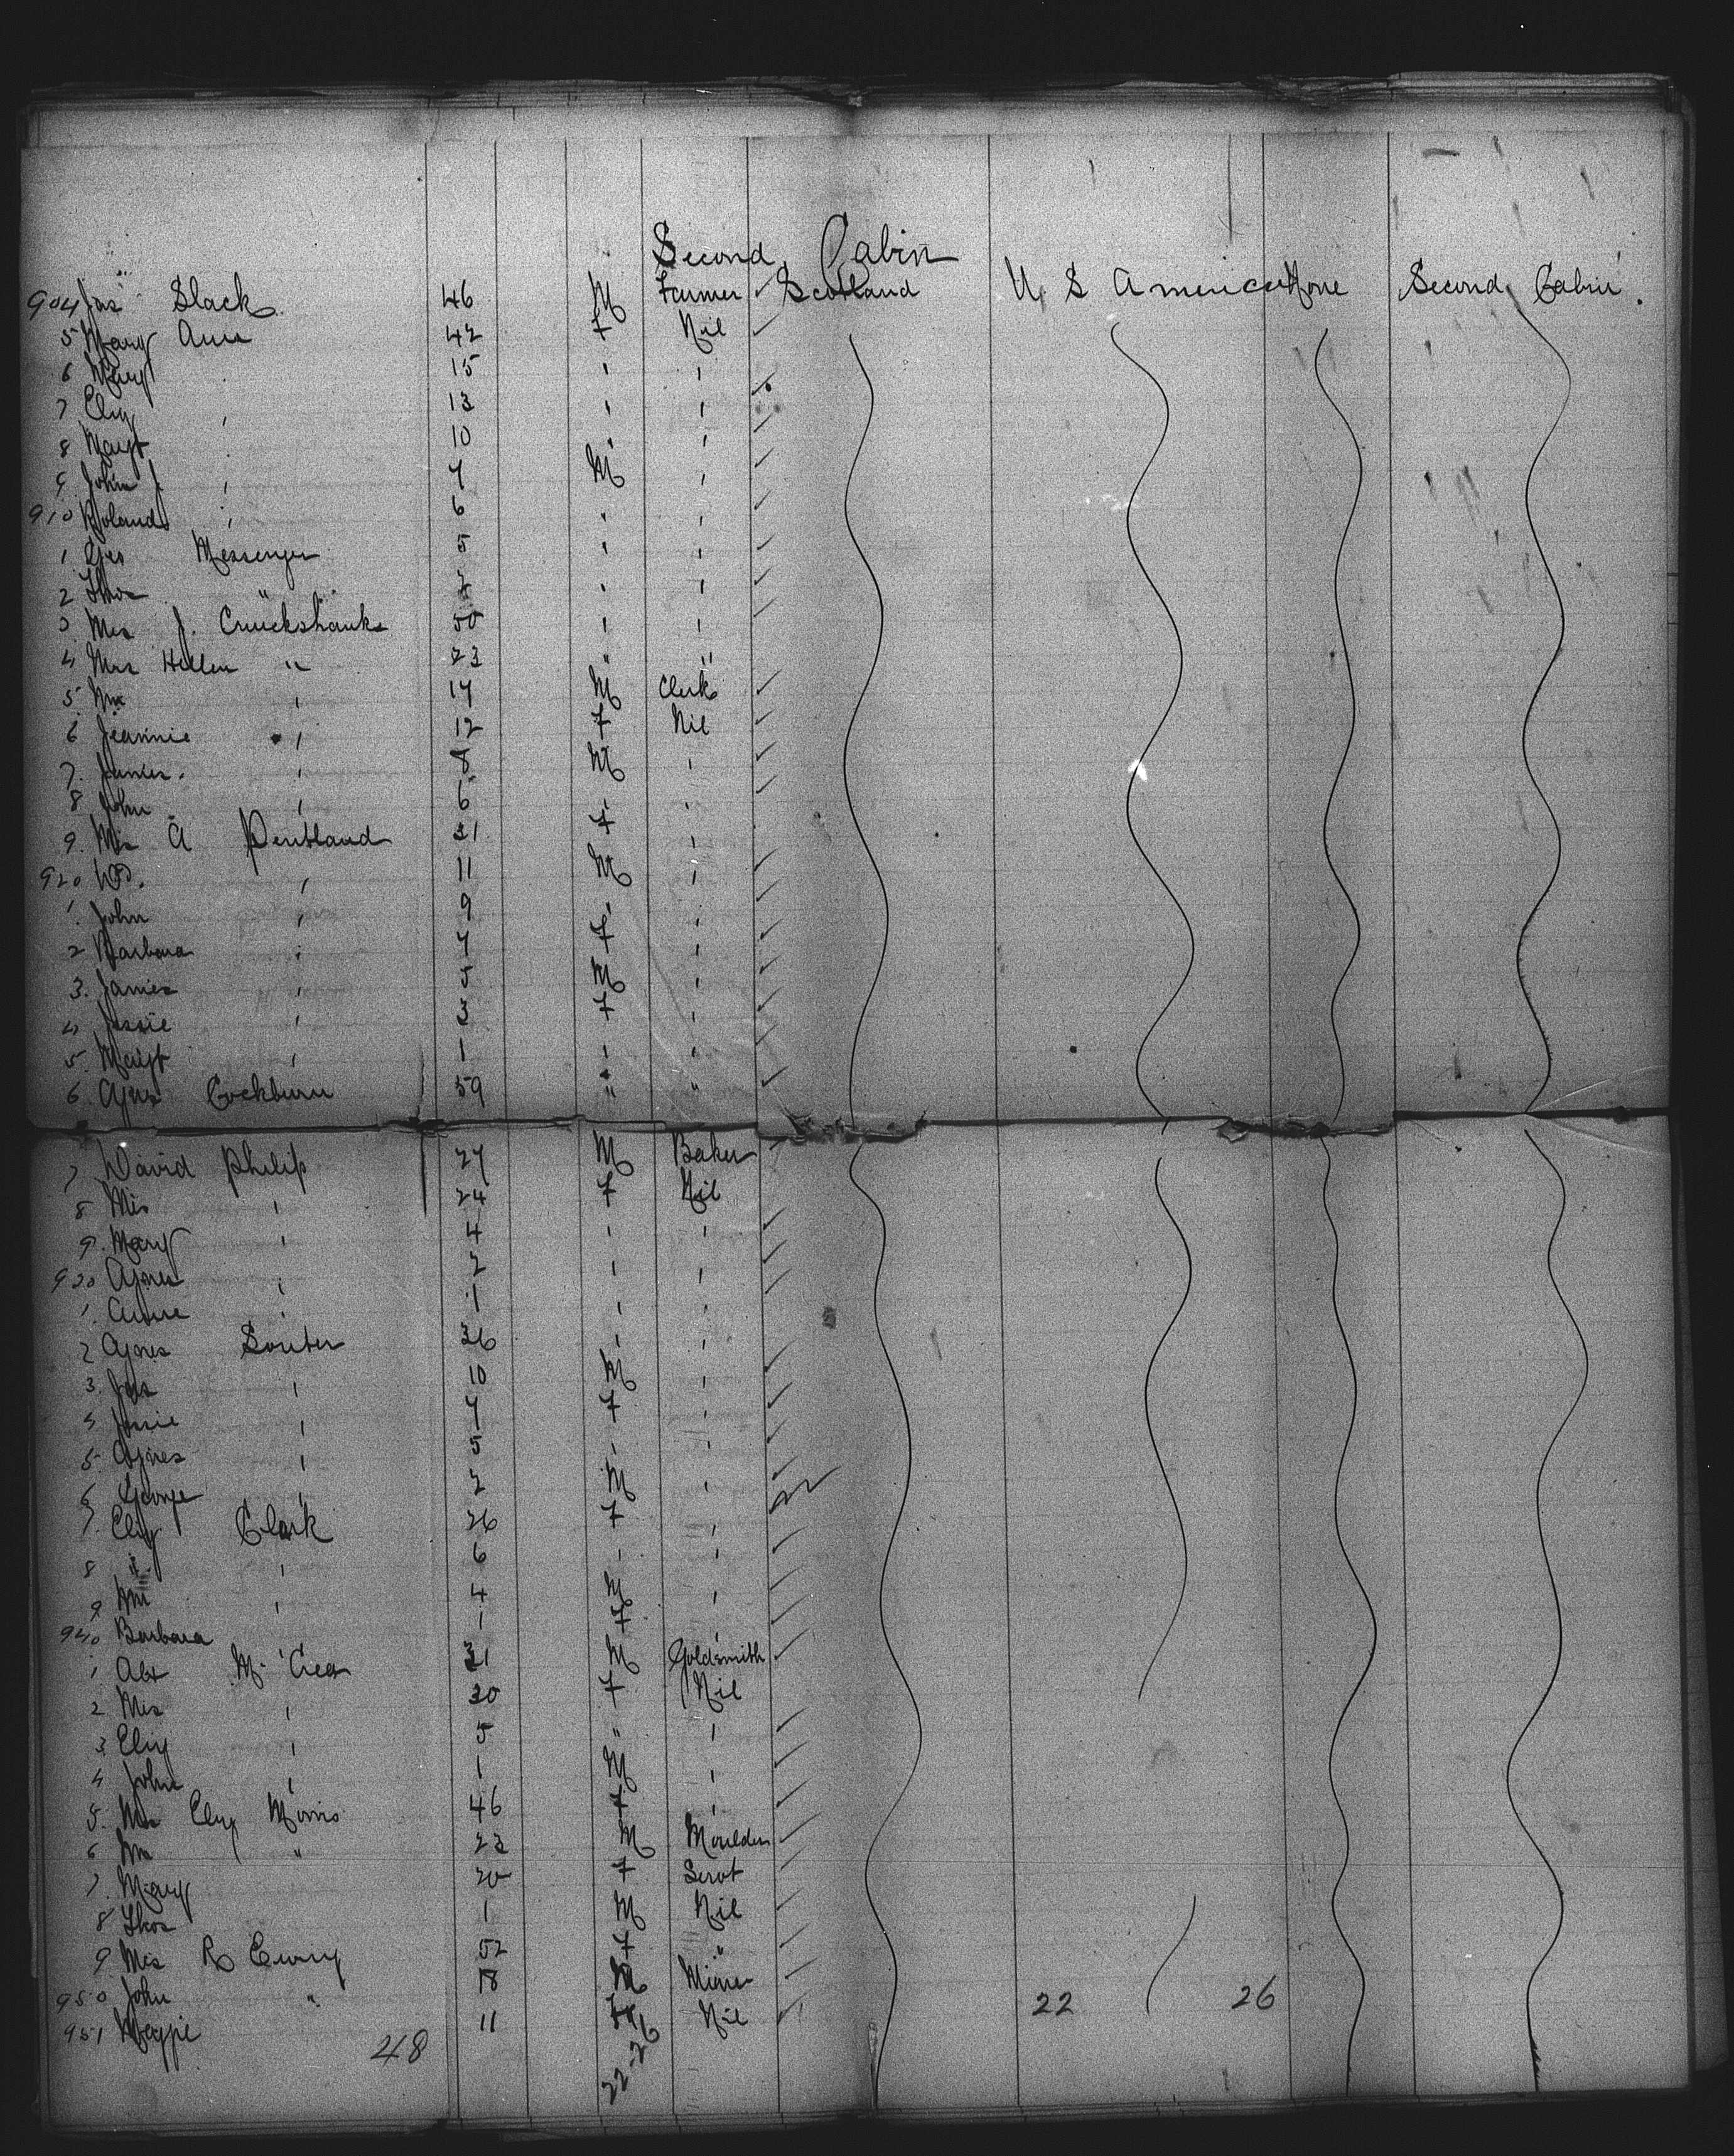 Second Cabin
904 Jas Slack 46 M Farmer Scotland U S America None Second Cabin.
5 Mary Ann 42 F Nil
6 Mary 15 " "
7 Eliz " 13 " "
8 Margt " 10 " "
9 John J. " 7 M "
910 Roland " 6 " "
1 Geo Messenger 5 " "
2 Thos " " "
3 Mrs J. Cruickshanks 50 " "
4 Mrs Hellen " 23 " "
5 Wm " 17 M Clerk
6 Jeannie " 12 F Nil
7. James. " 8 M "
8 John " 6 " "
9. Mrs A Pentland 31 F "
920 Wm. " 11 M "
1. John " 9 " "
2 Barbara " 7 F "
3. James " 5 M "
4 Jessie " 3 F "
5. Margt " 1 " "
6. Agnes Cockburn 59 " "
7 David Philip 27 M Baker
8 Mrs " 24 F Nil
9. Mary " 4 " "
930 Agnes " 2 " "
1. Annie " 1 " "
2 Agnes Souter 36 " "
3. Jas " 10 M "
4 Jessie " 7 F "
5. Agnes " 5 " "
6 George " 2 M "
7. Eliz Clark 26 F "
8 " " 6 " "
9 Wm " 4 M "
940 Barbara 1 F "
1 Alex Mc Crea 31 M Goldsmith
2 Mrs " 30 F Nil
3 Eliz " 5 " "
4 John " 1 M "
5. Mrs Eliz Morris 46 F "
6 Wm " 23 M Moulder
7. Mary 20 F Servt
8 Thos 1 M Nil
9 Mrs R Ewing 52 F "
950 John " 18 M Miner
951 Maggie 11 F Nil
22 26
48 22-26